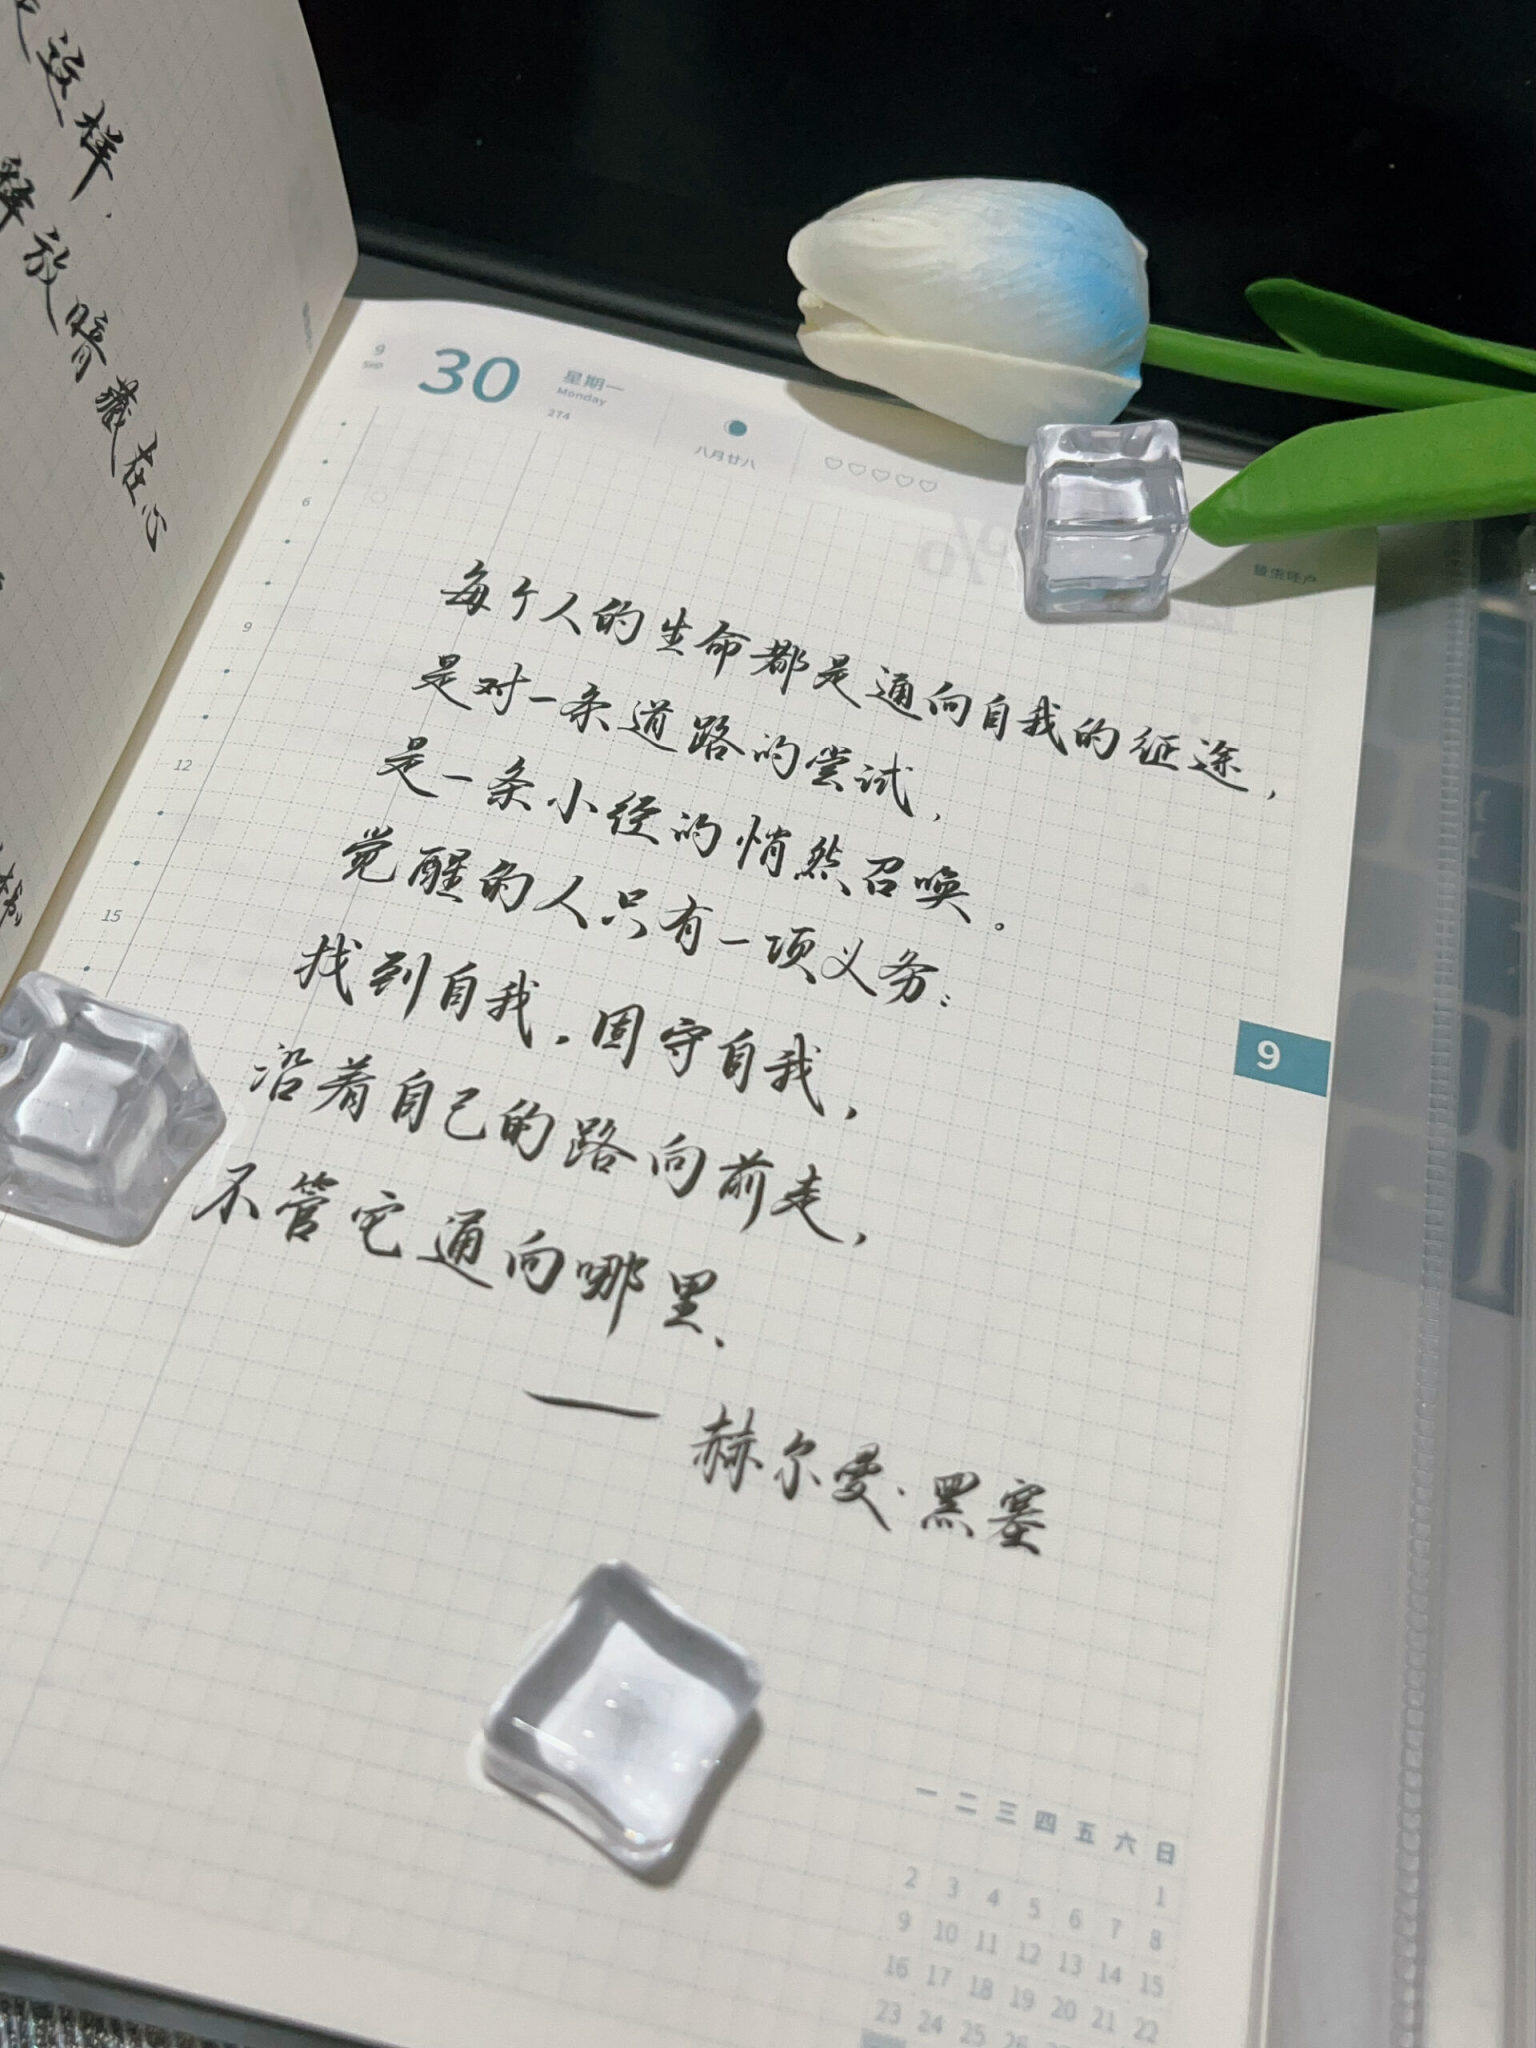 这样.
解放暗藏在心
9
SEP
30
星期一
Monday
274
八月廿八
6
9
12
15
每个人的生命都是通向自我的征途,
是对一条道路的尝试,
是一条小径的悄然召唤。
觉醒的人只有一项义务:
找到自我,固守自我,
沿着自己的路向前走,
不管它通向哪里.
—— 赫尔曼·黑塞
9
一 二 三 四 五 六 日
1
2 3 4 5 6 7 8
9 10 11 12 13 14 15
16 17 18 19 20 21 22
23 24 25 26